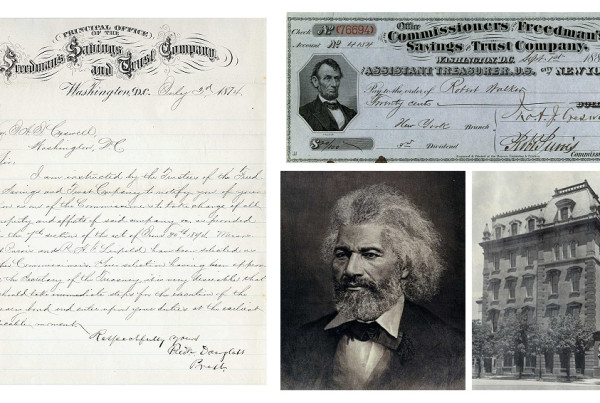 PRINCIPAL OFFICE
OF THE
Freedman's Savings
and Trust Company,
Washington, D.C. July 3rd 1874.
Creswell
Washington, DC
I am instructed by the Trustees of the
Savings and Trust Company to notify you of your
as one of the Commissioners to take charge of all
property and effects of said company as is provided
in the 7th section of the act of June 20th 1874. Messrs
and R. H. T. Leipold have been selected as
Commissioners. Your selection having been approved
the Secretary of the Treasury, it is very desirable that
should take immediate steps for the execution of the
bond and enter upon your duties at the earliest
moment.
Respectfully yours
Fredk Douglass
Prest
Check No (76694) Office
Commissioners of the Freedman's
Account No Savings and Trust Company,
WASHINGTON, D.C. Sept. 1st 188
ASSISTANT TREASURER, U.S. NEW YORK
Pay to the order of Robert Walker
Twenty cents
New York Branch Jno A. J. Creswell
Dividend